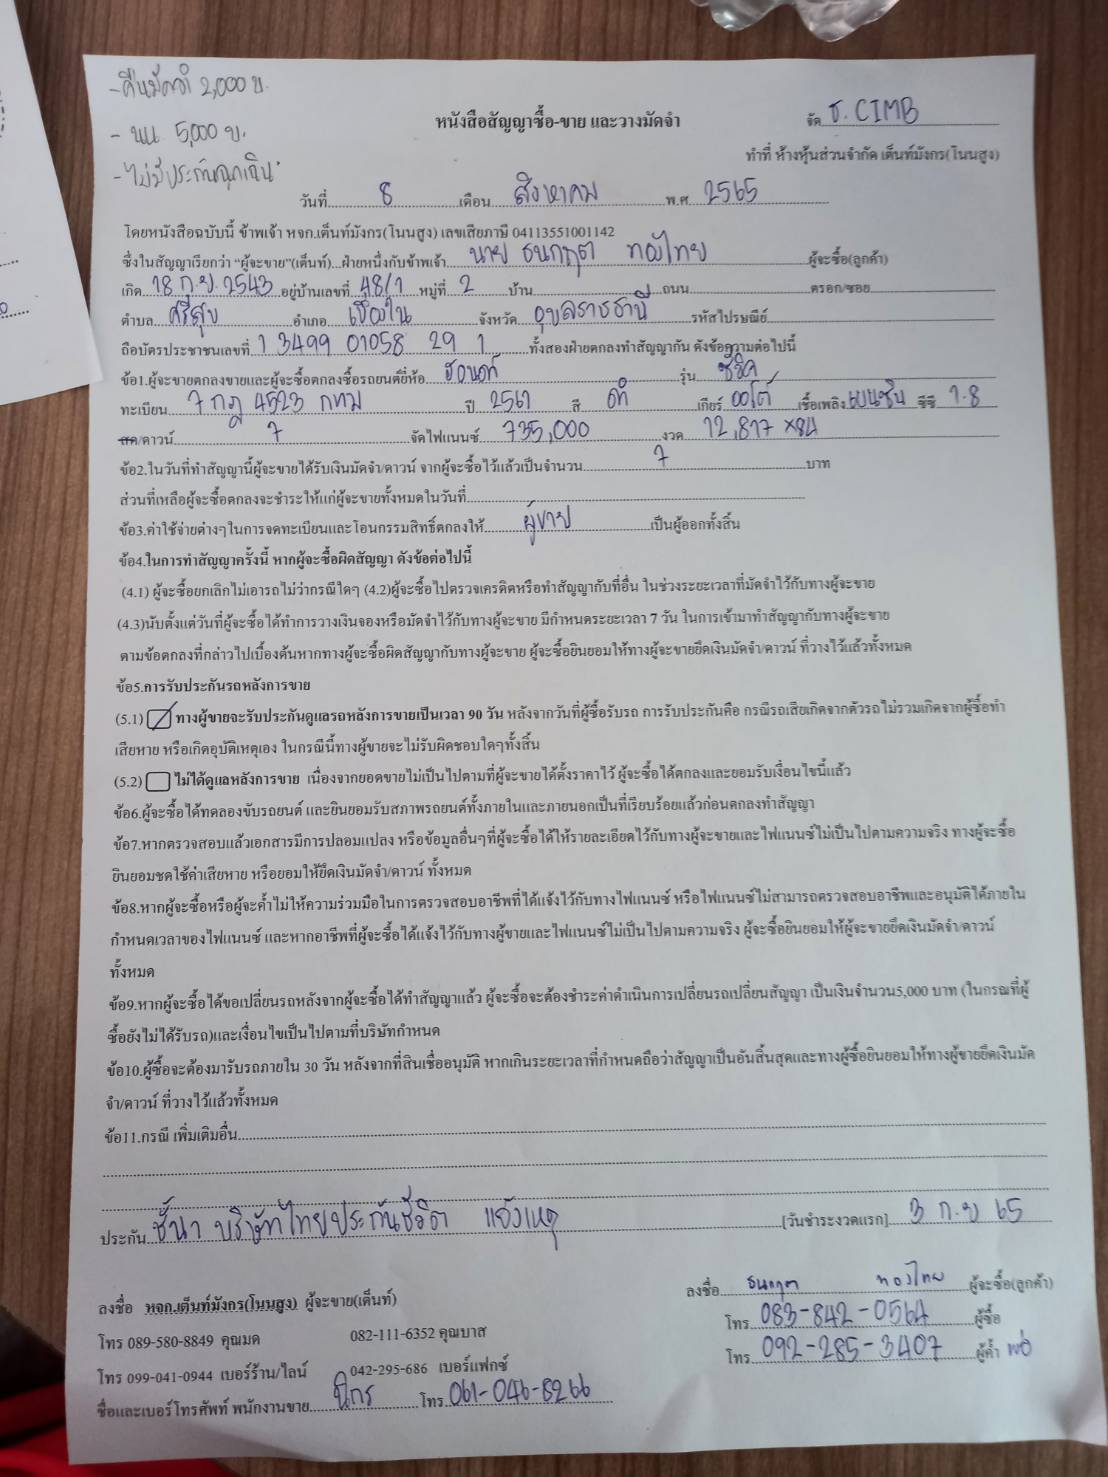 -คืนมัดจำ 2,000 บ.
- แนะ 5,000 บ.
-ไม่มีประกันฉุกเฉิน
หนังสือสัญญาซื้อ-ขาย และวางมัดจำ
จัด ธ. CIMB
ทำที่ ห้างหุ้นส่วนจำกัด เต็นท์มังกร(โนนสูง)
วันที่ 8 เดือน สิงหาคม พ.ศ. 2565
โดยหนังสือฉบับนี้ ข้าพเจ้า หจก.เต็นท์มังกร(โนนสูง) เลขเสียภาษี 04113551001142
ซึ่งในสัญญาเรียกว่า “ผู้จะขาย”(เต็นท์)...ฝ่ายหนึ่งกับข้าพเจ้า นาย ธนกฤต ทองไทย ผู้จะซื้อ(ลูกค้า)
เกิด 18 ก.ย. 2543 อยู่บ้านเลขที่ 48/1 หมู่ที่ 2 บ้าน ถนน ตรอก/ซอย
ตำบล ศรีสุข อำเภอ เขื่องใน จังหวัด อุบลราชธานี รหัสไปรษณีย์
ถือบัตรประชาชนเลขที่ 1 3499 01058 29 1 ทั้งสองฝ่ายตกลงทำสัญญากัน ดังข้อความต่อไปนี้
ข้อ1.ผู้จะขายตกลงขายและผู้จะซื้อตกลงซื้อรถยนต์ยี่ห้อ ฮอนด้า รุ่น ซีวิค
ทะเบียน 7 กฎ 4523 กทม ปี 2561 สี ดำ เกียร์ ออโต้ เชื้อเพลิง เบนซิน ซีซี 1.8
สด/ดาวน์ 7 จัดไฟแนนซ์ 735,000 งวด 12,817 ×84
ข้อ2.ในวันที่ทำสัญญานี้ผู้จะขายได้รับเงินมัดจำ/ดาวน์ จากผู้จะซื้อไว้แล้วเป็นจำนวน 7 บาท
ส่วนที่เหลือผู้จะซื้อตกลงจะชำระให้แก่ผู้จะขายทั้งหมดในวันที่
ข้อ3.ค่าใช้จ่ายต่างๆในการจดทะเบียนและโอนกรรมสิทธิ์ตกลงให้ ผู้ขาย เป็นผู้ออกทั้งสิ้น
ข้อ4.ในการทำสัญญาครั้งนี้ หากผู้จะซื้อผิดสัญญา ดังข้อต่อไปนี้
(4.1) ผู้จะซื้อยกเลิกไม่เอารถไม่ว่ากรณีใดๆ (4.2)ผู้จะซื้อไปตรวจเครดิตหรือทำสัญญากับที่อื่น ในช่วงระยะเวลาที่มัดจำไว้กับทางผู้จะขาย
(4.3)นับตั้งแต่วันที่ผู้จะซื้อได้ทำการวางเงินจองหรือมัดจำไว้กับทางผู้จะขาย มีกำหนดระยะเวลา 7 วัน ในการเข้ามาทำสัญญากับทางผู้จะขาย
ตามข้อตกลงที่กล่าวไปเบื้องต้นหากทางผู้จะซื้อผิดสัญญากับทางผู้จะขาย ผู้จะซื้อยินยอมให้ทางผู้จะขายยึดเงินมัดจำ/ดาวน์ ที่วางไว้แล้วทั้งหมด
ข้อ5.การรับประกันรถหลังการขาย
(5.1) ทางผู้ขายจะรับประกันดูแลรถหลังการขายเป็นเวลา 90 วัน หลังจากวันที่ผู้ซื้อรับรถ การรับประกันคือ กรณีรถเสียเกิดจากตัวรถ ไม่รวมเกิดจากผู้ซื้อทำ
เสียหาย หรือเกิดอุบัติเหตุเอง ในกรณีนี้ทางผู้ขายจะไม่รับผิดชอบใดๆทั้งสิ้น
(5.2) ไม่ได้ดูแลหลังการขาย เนื่องจากยอดขายไม่เป็นไปตามที่ผู้จะขายได้ตั้งราคาไว้ ผู้จะซื้อได้ตกลงและยอมรับเงื่อนไขนี้แล้ว
ข้อ6.ผู้จะซื้อได้ทดลองขับรถยนต์ และยินยอมรับสภาพรถยนต์ทั้งภายในและภายนอกเป็นที่เรียบร้อยแล้วก่อนตกลงทำสัญญา
ข้อ7.หากตรวจสอบแล้วเอกสารมีการปลอมแปลง หรือข้อมูลอื่นๆที่ผู้จะซื้อได้ให้รายละเอียดไว้กับทางผู้จะขายและไฟแนนซ์ไม่เป็นไปตามความจริง ทางผู้จะซื้อ
ยินยอมชดใช้ค่าเสียหาย หรือยอมให้ยึดเงินมัดจำ/ดาวน์ ทั้งหมด
ข้อ8.หากผู้จะซื้อหรือผู้จะค้ำไม่ให้ความร่วมมือในการตรวจสอบอาชีพที่ได้แจ้งไว้กับทางไฟแนนซ์ หรือไฟแนนซ์ไม่สามารถตรวจสอบอาชีพและอนุมัติได้ภายใน
กำหนดเวลาของไฟแนนซ์ และหากอาชีพที่ผู้จะซื้อได้แจ้งไว้กับทางผู้ขายและไฟแนนซ์ไม่เป็นไปตามความจริง ผู้จะซื้อยินยอมให้ผู้จะขายยึดเงินมัดจำ/ดาวน์
ทั้งหมด
ข้อ9.หากผู้จะซื้อได้ขอเปลี่ยนรถหลังจากผู้จะซื้อได้ทำสัญญาแล้ว ผู้จะซื้อจะต้องชำระค่าดำเนินการเปลี่ยนรถเปลี่ยนสัญญา เป็นเงินจำนวน5,000 บาท (ในกรณีที่ผู้
ซื้อยังไม่ได้รับรถ)และเงื่อนไขเป็นไปตามที่บริษัทกำหนด
ข้อ10.ผู้ซื้อจะต้องมารับรถภายใน 30 วัน หลังจากที่สินเชื่ออนุมัติ หากเกินระยะเวลาที่กำหนดถือว่าสัญญาเป็นอันสิ้นสุดและทางผู้ซื้อยินยอมให้ทางผู้ขายยึดเงินมัด
จำ/ดาวน์ ที่วางไว้แล้วทั้งหมด
ข้อ11.กรณี เพิ่มเติมอื่น
ประกัน ชั้น1 บริษัทไทยประกันชีวิต แจ้งเหตุ [วันชำระงวดแรก] 3 ก.ย 65
ลงชื่อ หจก.เต็นท์มังกร(โนนสูง) ผู้จะขาย(เต็นท์)
ลงชื่อ ธนกฤต ทองไทย ผู้จะซื้อ(ลูกค้า)
โทร 089-580-8849 คุณมด 082-111-6352 คุณบาส
โทร 083-842-0564 ผู้ซื้อ
โทร 099-041-0944 เบอร์ร้าน/ไลน์ 042-295-686 เบอร์แฟกซ์
โทร 092-285-3407 ผู้ค้ำ พ่อ
ชื่อและเบอร์โทรศัพท์ พนักงานขาย นิกร โทร 061-046-8266